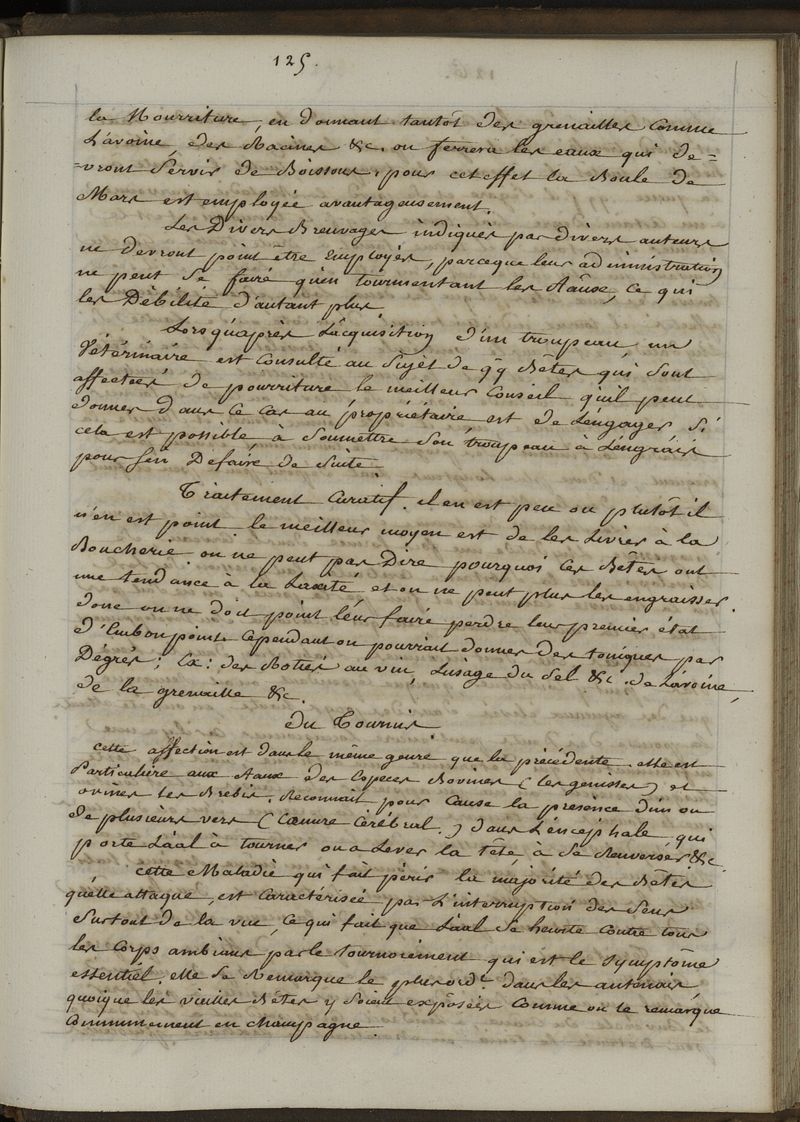 125.
la Nourriture, en donnant tantôt des grenailles comme
L'avoine, des Racines &c. on ferrera les eaux qui de=
=vront Servir de Boissons, pour cet effet la Boule de
Mars est employée avantageusement.
Les Divers Breuvages indiqués par divers auteurs
ne devront point être Employés, parceque leur administration
ne peut se faire qu'en tourmentant les Aāux, ce qui
les Débilite d'autant plus.
Lorsqu'après L'acquisition d'un troupeau un
Vétérinaire est Consulté au Sujet de qq Bêtes qui sont
affectées de pourriture le meilleur Conseil qu'il peut
donner dans ce cas au propriétaire est de L'engager si
cela est possible à Soumettre Son troupeau à L'engrais
pour s'en Défaire de Suite.
Traitement Curatif. il en est peu ou plutôt il
n'en est point le meilleur moyen est de les Livrer à la
Boucherie on ne peut pas Dire pourquoi ces Bêtes ont
une tendance à la Laxité et on ne peut plus les engraisser.
donc on ne doit point leur faire perdre leur premier état
d'Embonpoint. Cependant on pourrait donner des toniques par
Dégrés; Ex: des Roties au vin, L'usage du Sel &c. de L'avoine,
de la grenaille &c.
du Tournis
cette affection est dans le même genre que la précédente. elle est
Particulière aux Aāux des Espèces Bovines (les genisses) et
ovines les Brebis. Reconnait pour Cause la présence d'un ou
de plusieurs vers (Cœnure Cérébral.) dans L'encéphale qui
porte L'aāl à tourner ou à Lever la Tête à Se Renverser &c.
cette Maladie qui fait périr la majorité des Bêtes
qu'elle attaque, est Caractérisée par L'interruption des Sens
Surtout de la vue, ce qui fait que L'aāl Se heurte contre tous
les Corps ambians par le tournoiement qui est le Symptôme
essentiel. elle Se Remarque le plus ord.t dans les antenois
quoique les vieilles Bêtes y soient exposées Comme on le remarque
Communement en champagne.